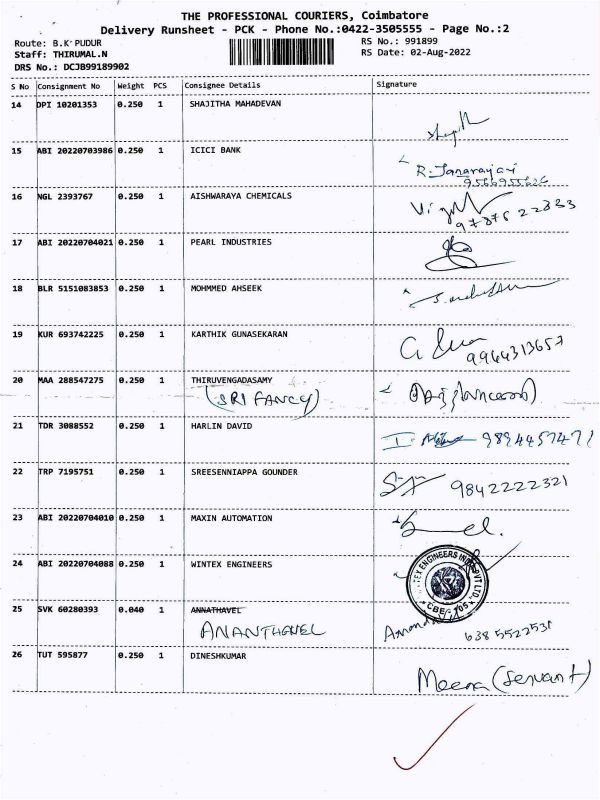 THE PROFESSIONAL COURIERS, Coimbatore
Delivery Runsheet - PCK - Phone No.:0422-3505555 - Page No.:2
Route: B.K PUDUR RS No.: 991899
Staff: THIRUMAL.N RS Date: 02-Aug-2022
DRS No.: DCJB99189902
S No Consignment No Weight PCS Consignee Details Signature
14 DPI 10201353 0.250 1 SHAJITHA MAHADEVAN
15 ABI 20220703986 0.250 1 ICICI BANK
R. Janarajani
16 NGL 2393767 0.250 1 AISHWARAYA CHEMICALS
17 ABI 20220704021 0.250 1 PEARL INDUSTRIES
18 BLR 5151083853 0.250 1 MOHMMED AHSEEK
19 KUR 693742225 0.250 1 KARTHIK GUNASEKARAN
9944313657
20 MAA 288547275 0.250 1 THIRUVENGADASAMY
(SRI FANCY)
21 TDR 3088552 0.250 1 HARLIN DAVID
9894457471
22 TRP 7195751 0.250 1 SREESENNIAPPA GOUNDER
9842222321
23 ABI 20220704010 0.250 1 MAXIN AUTOMATION
24 ABI 20220704088 0.250 1 WINTEX ENGINEERS
TEX ENGINEERS IND PVT LTD. CBE 105
25 SVK 60280393 0.040 1 ANNATHAVEL
ANANTHAVEL
638 5522531
26 TUT 595877 0.250 1 DINESHKUMAR
Meena (Servant)